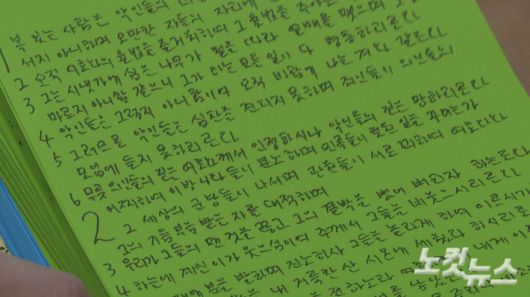 복 있는 사람은 악인들의
서지 아니하며 오만한 자들의 자리에
2 오직 여호와의 율법을 즐거워하여 그 율법을 주야로
3 그는 시냇가에 심은 나무가 철을 따라 열매를 맺으며 그
마르지 아니함 같으니 그가 하는 모든 일이 다 형통하리로다
4 악인들은 그렇지 아니함이여 오직 바람에 나는 겨와 같도다
5 그러므로 악인들은 심판을 견디지 못하며 죄인들이 의인들의
모임에 들지 못하리로다
6 무릇 의인들의 길은 여호와께서 인정하시나 악인들의 길은 망하리로다
2 어찌하여 이방 나라들이 분노하며 민족들이 헛된 일을 꾸미는가
2 세상의 군왕들이 나서며 관원들이 서로 꾀하여 여호와와
그의 기름 부음 받은 자를 대적하며
3 우리가 그들의 맨 것을 끊고 그의 결박을 벗어 버리자 하는도다
4 하늘에 계신 이가 웃으심이여 주께서 그들을 비웃으시리로다
분을 발하며 진노하사 그들을 놀라게 하여 이르시기를
내 거룩한 산 시온에 세웠다 하시리로다
전하노라
노컷뉴스